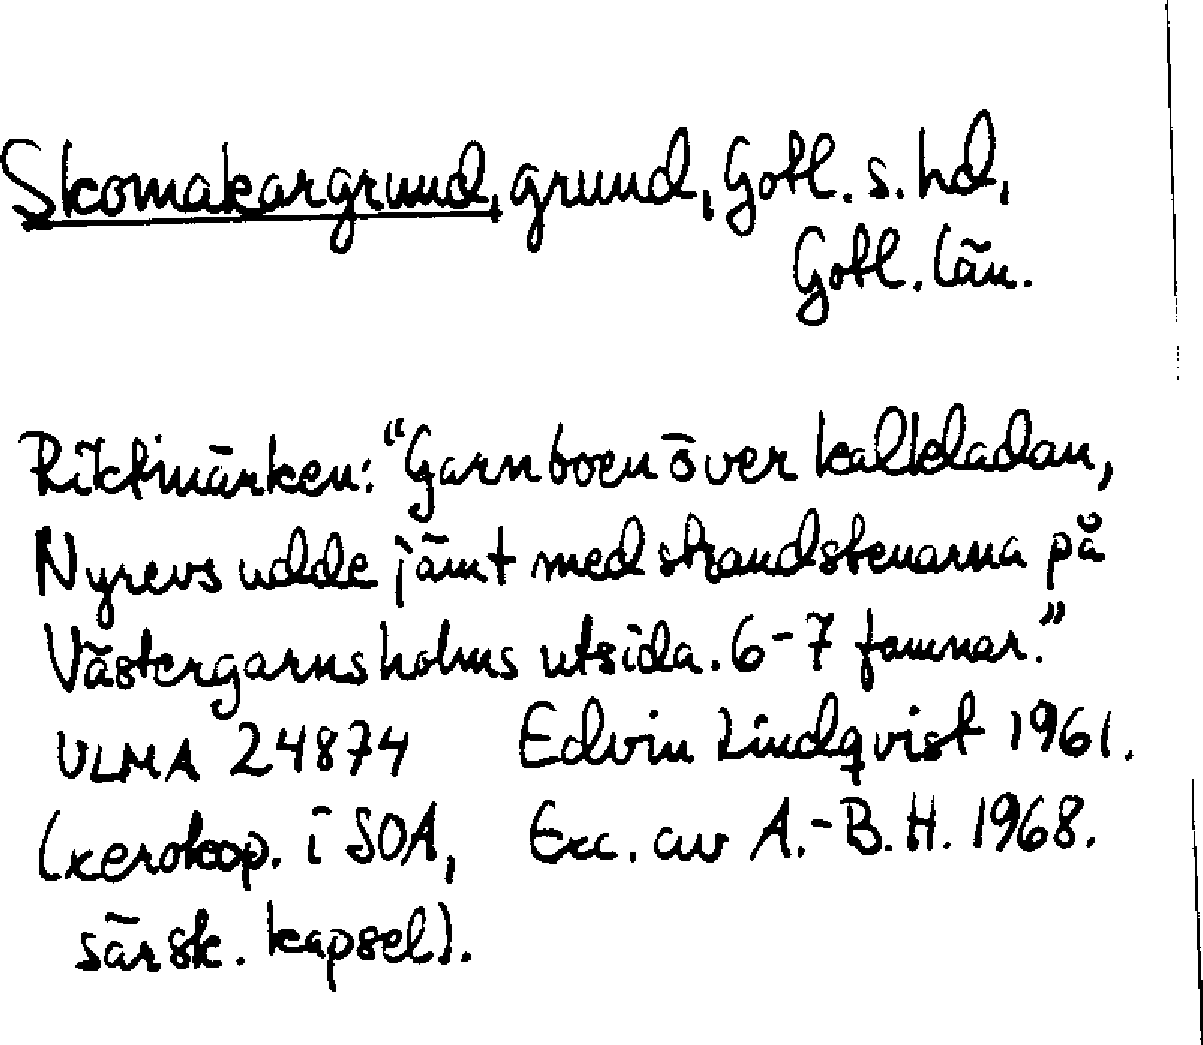 Skomakargrund, grund, Gotl. s. hd,
Gotl. län.
Riktmärken: "Garnboen över kalkladan,
Nyrevs udde jämt med strandstenarna på
Västergarnsholms utsida. 6-7 famnar."
ULMA 24874 Edvin Lindqvist 1961.
(xerokop. i SOA, Exc. av A.-B. H. 1968.
särsk. kapsel).